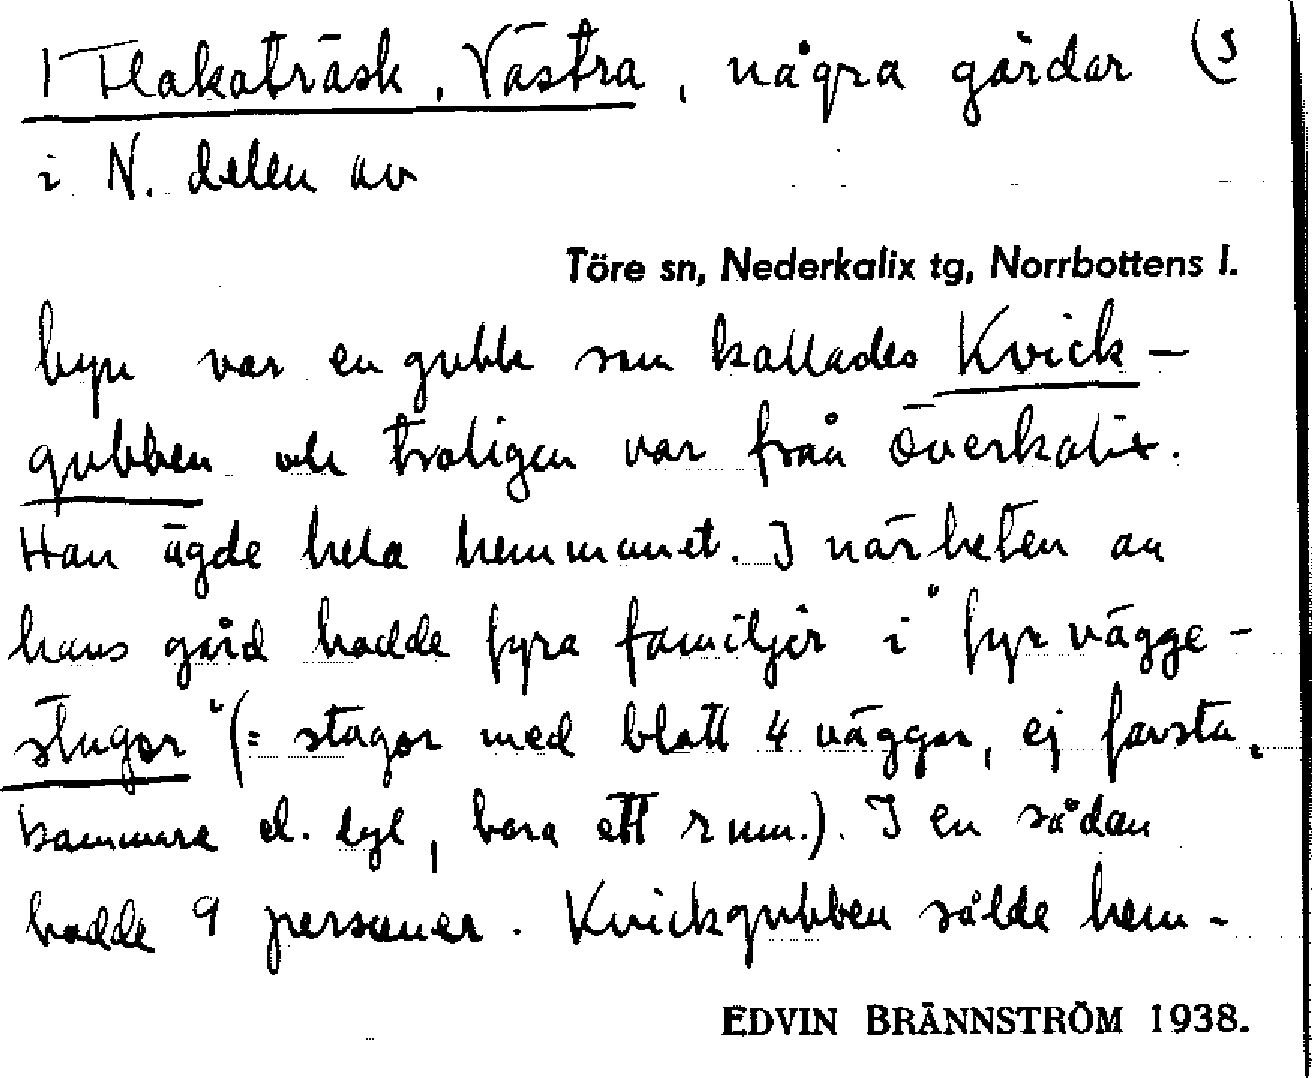 1 Flakaträsk, Västra, några gårdar (s
i N. delen av
Töre sn, Nederkalix tg, Norrbottens l.
byn var en gubbe som kallades Kvick-
gubben och troligen var från Överkalix.
Han ägde hela hemmanet. I närheten av
hans gård bodde fyra familjer i "fyrvägge-
stugor" (= stugor med blott 4 väggar, ej farstu,
kammare el. dyl, bara ett rum.). I en sådan
bodde 9 personer. Kvickgubben sålde hem-
EDVIN BRÄNNSTRÖM 1938.